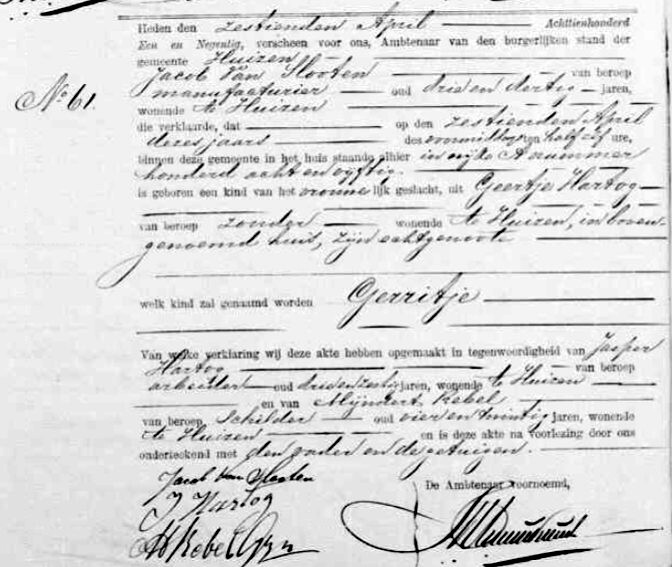 Heden den zestienden April Achttienhonderd
Een en Negentig, verscheen voor ons, Ambtenaar van den burgerlijken stand der
gemeente Huizen
Jacob van Slooten van beroep
manufacturier oud drie en dertig jaren,
No 61.
wonende te Huizen
die verklaarde, dat op den zestienden April
dezes jaars des voormiddags ten half elf ure,
binnen deze gemeente in het huis staande alhier in wijk A nummer
honderd acht en vijftig
is geboren een kind van het vrouwelijk geslacht, uit Geertje Hartog
van beroep zonder wonende te Huizen, in boven-
genoemd huis, zijn echtgenoote
welk kind zal genaamd worden Gerritje
Van welke verklaring wij deze akte hebben opgemaakt in tegenwoordigheid van Jasper
Hartog van beroep
arbeider oud drie en zestig jaren, wonende te Huizen
en van Mijndert Kebel
van beroep Schilder oud vier en twintig jaren, wonende
te Huizen en is deze akte na voorlezing door ons
onderteekend met den vader en de getuigen.
Jacob van Slooten
J Hartog
De Ambtenaar voornoemd,
M Kebel